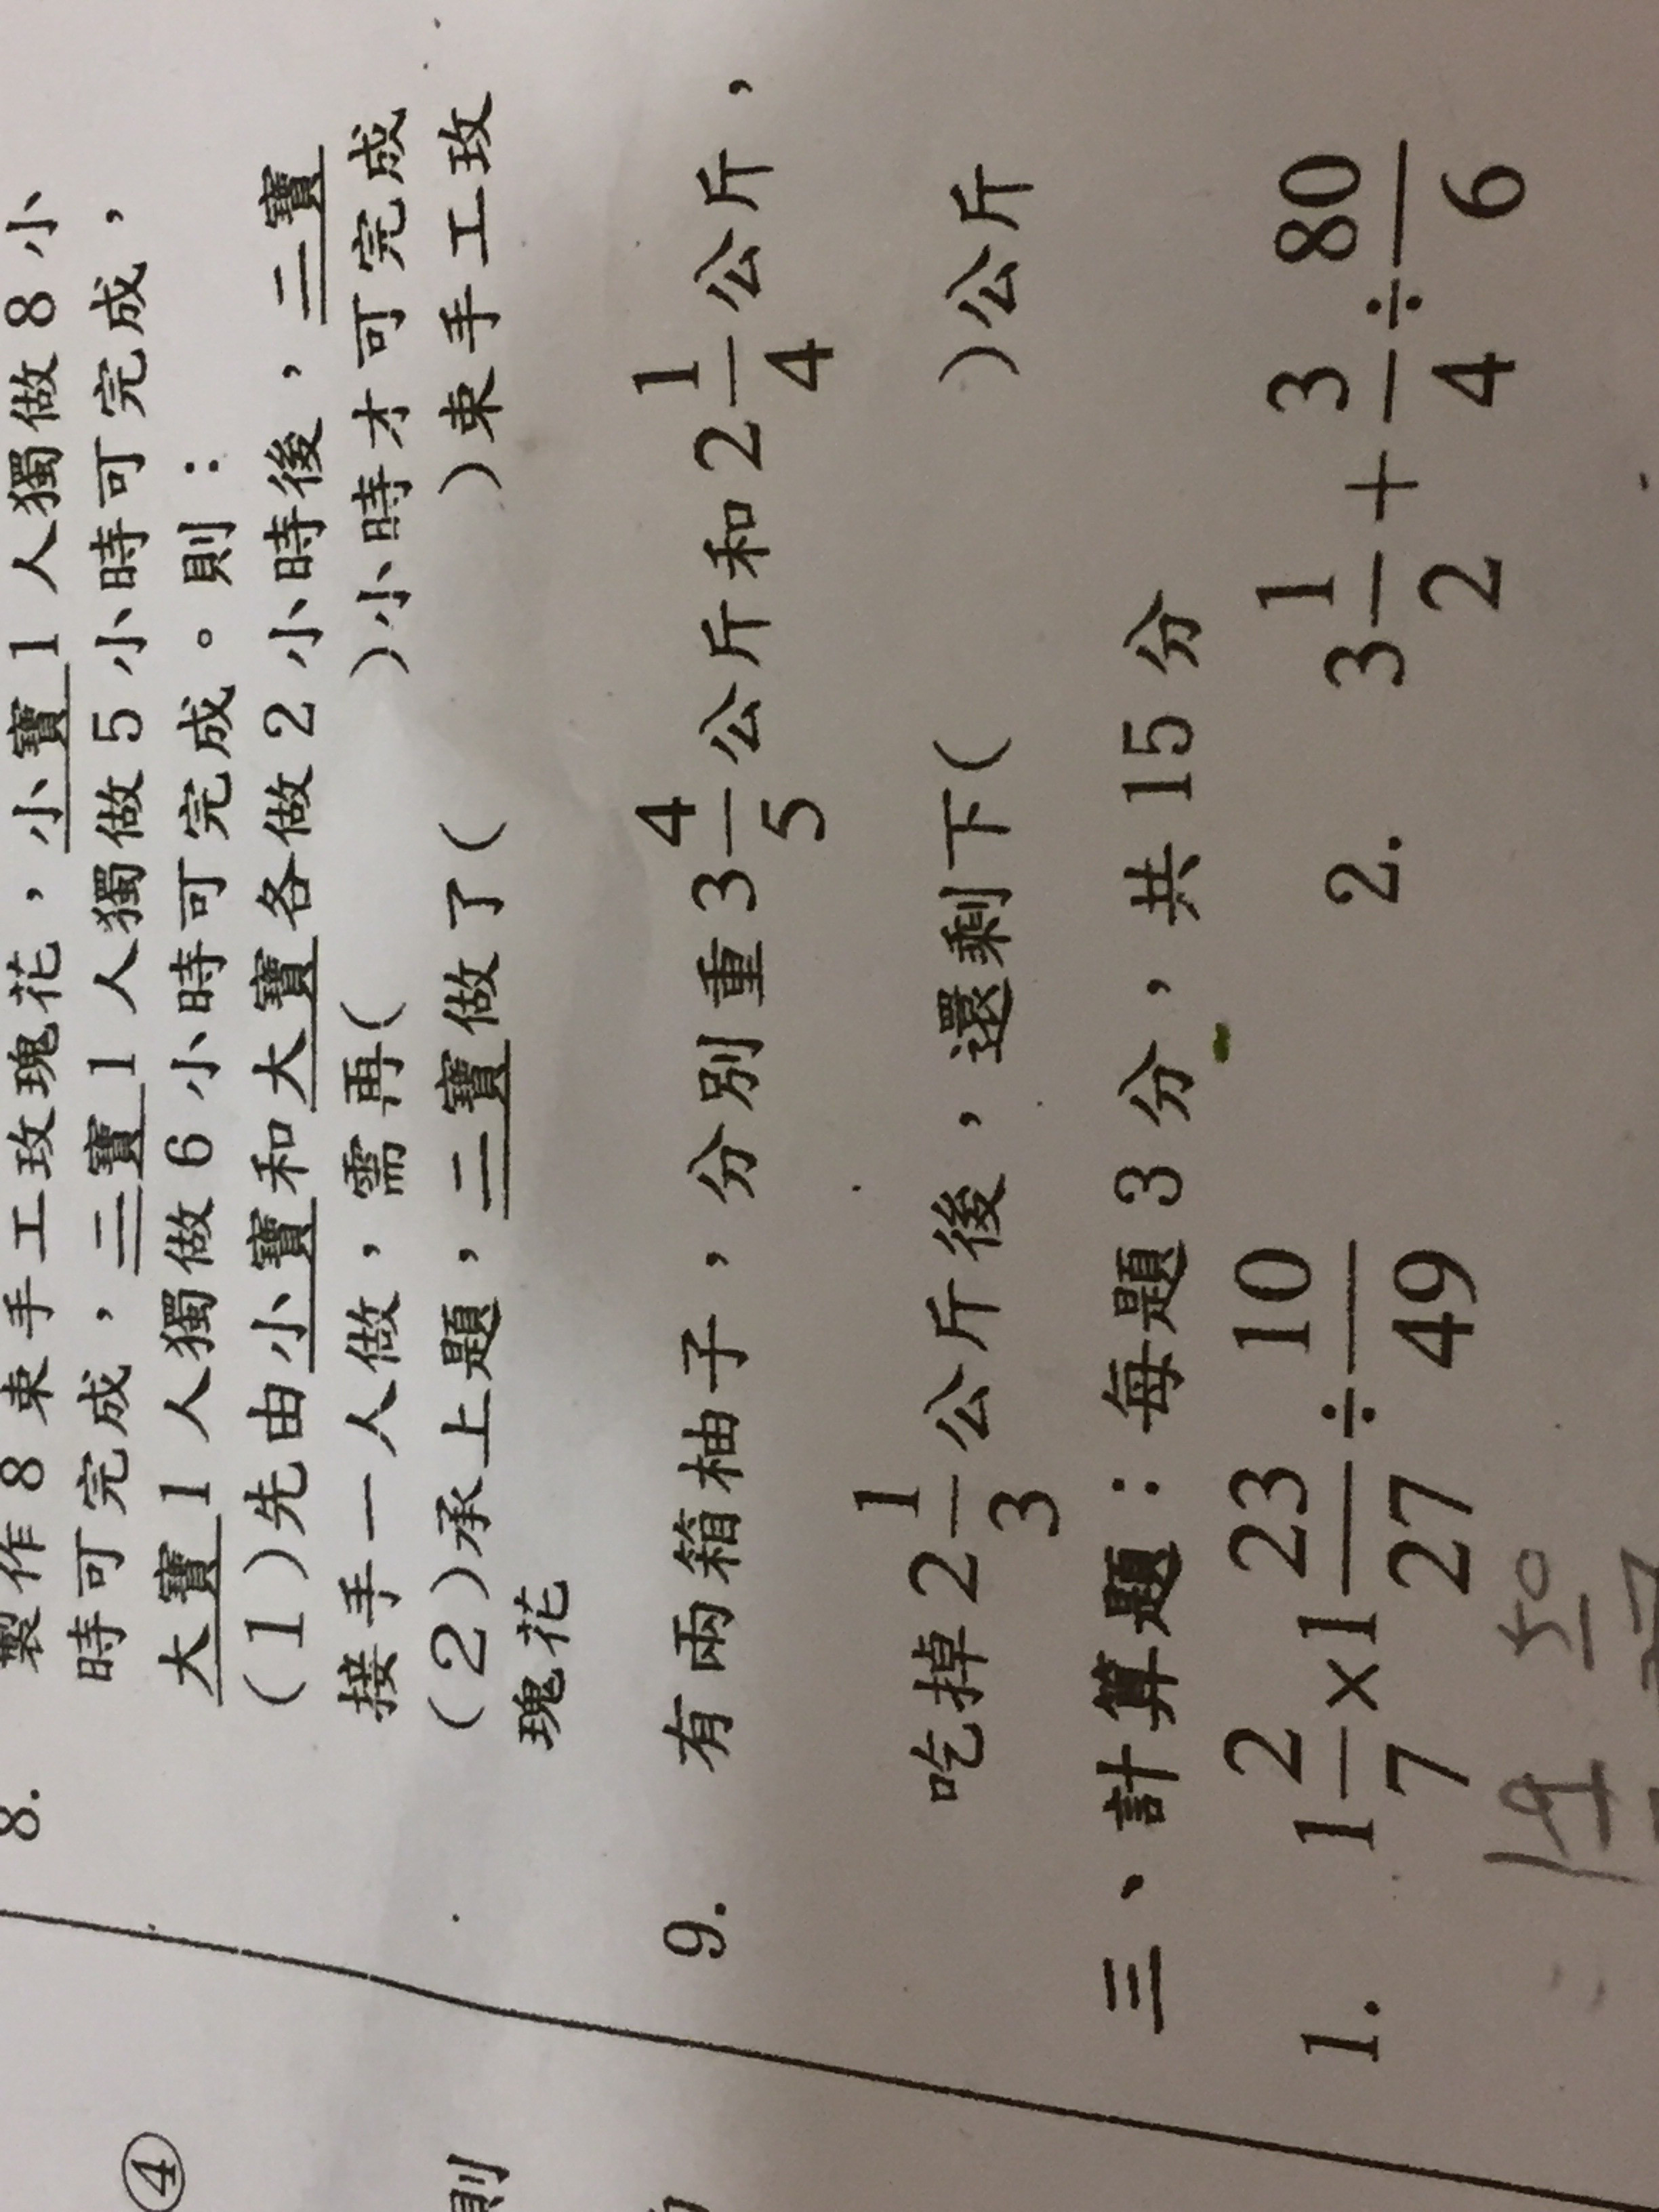 8. 製作8束手工玫瑰花，小寶1人獨做8小
時可完成，二寶1人獨做5小時可完成，
大寶1人獨做6小時可完成。則：
(1)先由小寶和大寶各做2小時後，二寶
接手一人做，需再( )小時才可完成
(2)承上題，二寶做了( )束手工玫
瑰花
9. 有兩箱柚子，分別重3 4/5 公斤和2 1/4 公斤，
吃掉2 1/3 公斤後，還剩下( )公斤
三、計算題：每題3分，共15分
1. 1 2/7 × 1 23/27 ÷ 10/49
2. 3 1/2 + 3/4 ÷ 80/6
9 50
④
則